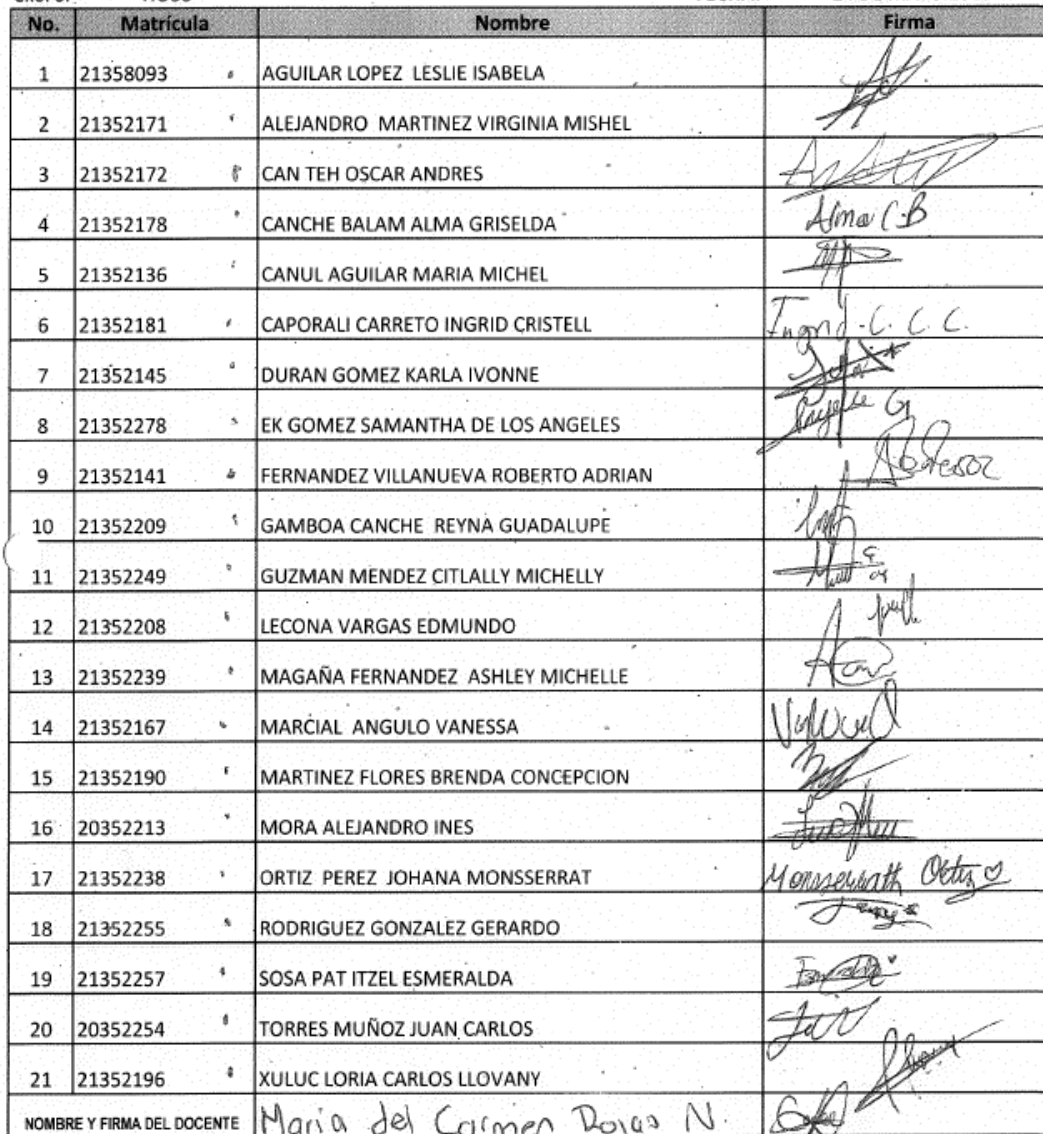 No. Matrícula Nombre Firma
1 21358093 AGUILAR LOPEZ LESLIE ISABELA
2 21352171 ALEJANDRO MARTINEZ VIRGINIA MISHEL
3 21352172 CAN TEH OSCAR ANDRES
4 21352178 CANCHE BALAM ALMA GRISELDA Alma C.B
5 21352136 CANUL AGUILAR MARIA MICHEL
6 21352181 CAPORALI CARRETO INGRID CRISTELL Ingrid.C. C. C.
7 21352145 DURAN GOMEZ KARLA IVONNE
8 21352278 EK GOMEZ SAMANTHA DE LOS ANGELES
9 21352141 FERNANDEZ VILLANUEVA ROBERTO ADRIAN
10 21352209 GAMBOA CANCHE REYNA GUADALUPE
11 21352249 GUZMAN MENDEZ CITLALLY MICHELLY
12 21352208 LECONA VARGAS EDMUNDO
13 21352239 MAGAÑA FERNANDEZ ASHLEY MICHELLE
14 21352167 MARCIAL ANGULO VANESSA
15 21352190 MARTINEZ FLORES BRENDA CONCEPCION
16 20352213 MORA ALEJANDRO INES
17 21352238 ORTIZ PEREZ JOHANA MONSSERRAT Monsserrath Ortiz
18 21352255 RODRIGUEZ GONZALEZ GERARDO
19 21352257 SOSA PAT ITZEL ESMERALDA
20 20352254 TORRES MUÑOZ JUAN CARLOS
21 21352196 XULUC LORIA CARLOS LLOVANY
NOMBRE Y FIRMA DEL DOCENTE María del Carmen Rojas N.